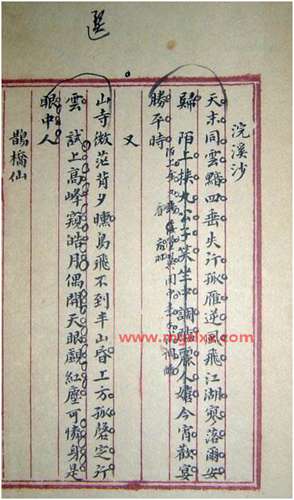 選
浣溪沙
天末同雲黯四垂失行孤雁逆風飛江湖寥落爾安
歸陌上挾丸公子笑坐中調醢麗人嬉今宵歡宴
勝平時
又
山寺微茫背夕曛鳥飛不到半山昏上方孤磬定行
雲試上高峰窺皓月偶開天眼覷紅塵可憐身是
眼中人
鵲橋仙